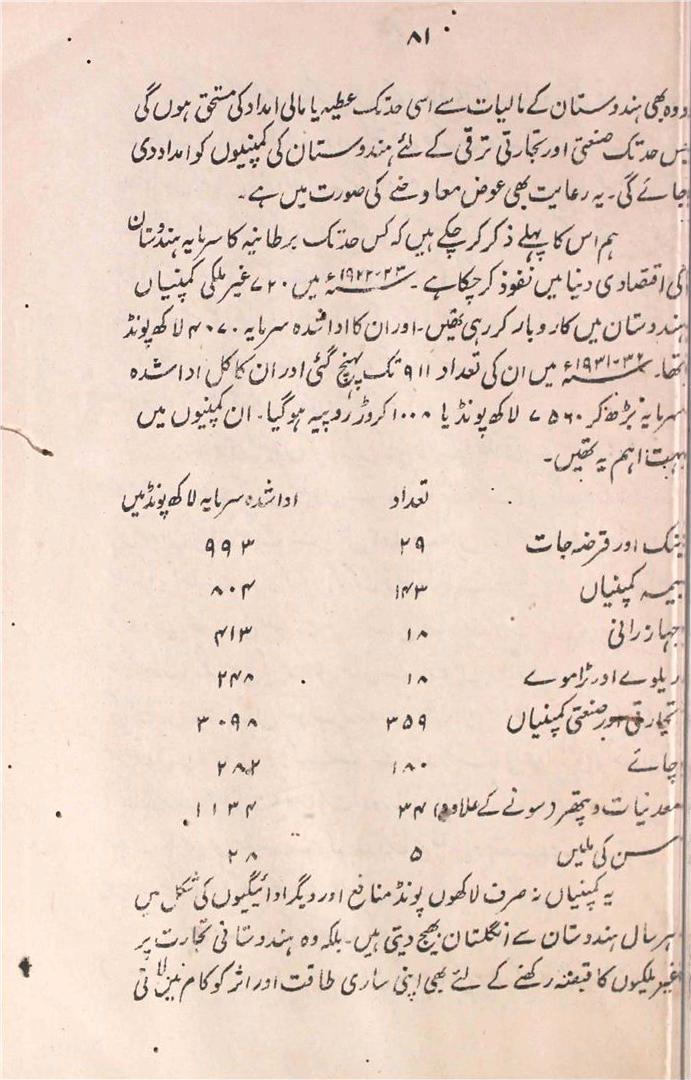 ۸۱
وہ بھی ہندوستان کے مالیات سے اسی حد تک عطیہ یا مالی امداد کی مستحق ہوں گی
جس حد تک صنعتی اور تجارتی ترقی کے لئے ہندوستان کی کمپنیوں کو امداد دی
جائے گی۔ یہ رعایت بھی عوض معاوضے کی صورت میں ہے۔
ہم اس کا پہلے ذکر کر چکے ہیں کہ کس حد تک برطانیہ کا سرمایہ ہندوستان
کی اقتصادی دنیا میں نفوذ کر چکا ہے۔ ۲۳-۱۹۲۲ء میں ۷۲۰ غیر ملکی کمپنیاں
ہندوستان میں کاروبار کر رہی تھیں۔ اور ان کا ادا شدہ سرمایہ ۴۰۷۰ لاکھ پونڈ
تھا۔ ۳۲-۱۹۳۱ء میں ان کی تعداد ۹۱۱ تک پہنچ گئی اور ان کا کل ادا شدہ
سرمایہ بڑھ کر ۷۵۶۰ لاکھ پونڈ یا ۱۰۰۸ کروڑ روپیہ ہو گیا۔ ان کمپنیوں میں
بہت اہم یہ تھیں۔
تعداد ادا شدہ سرمایہ لاکھ پونڈ میں
بینک اور قرضہ جات ۲۹ ۹۹۳
بیمہ کمپنیاں ۱۴۳ ۸۰۴
جہاز رانی ۱۸ ۴۱۳
ریلوے اور ٹراموے ۱۸ ۲۴۸
تجارتی اور صنعتی کمپنیاں ۳۵۹ ۳۰۹۸
چائے ۱۸۰ ۲۸۲
معدنیات و پتھر (سونے کے علاوہ) ۳۴ ۱۱۳۴
سن کی ملیں ۵ ۲۸
یہ کمپنیاں نہ صرف لاکھوں پونڈ منافع اور دیگر ادائیگیوں کی شکل میں
ہر سال ہندوستان سے انگلستان بھیج دیتی ہیں۔ بلکہ وہ ہندوستانی تجارت پر
غیر ملکیوں کا قبضہ رکھنے کے لئے بھی اپنی ساری طاقت اور اثر کو کام میں لاتی